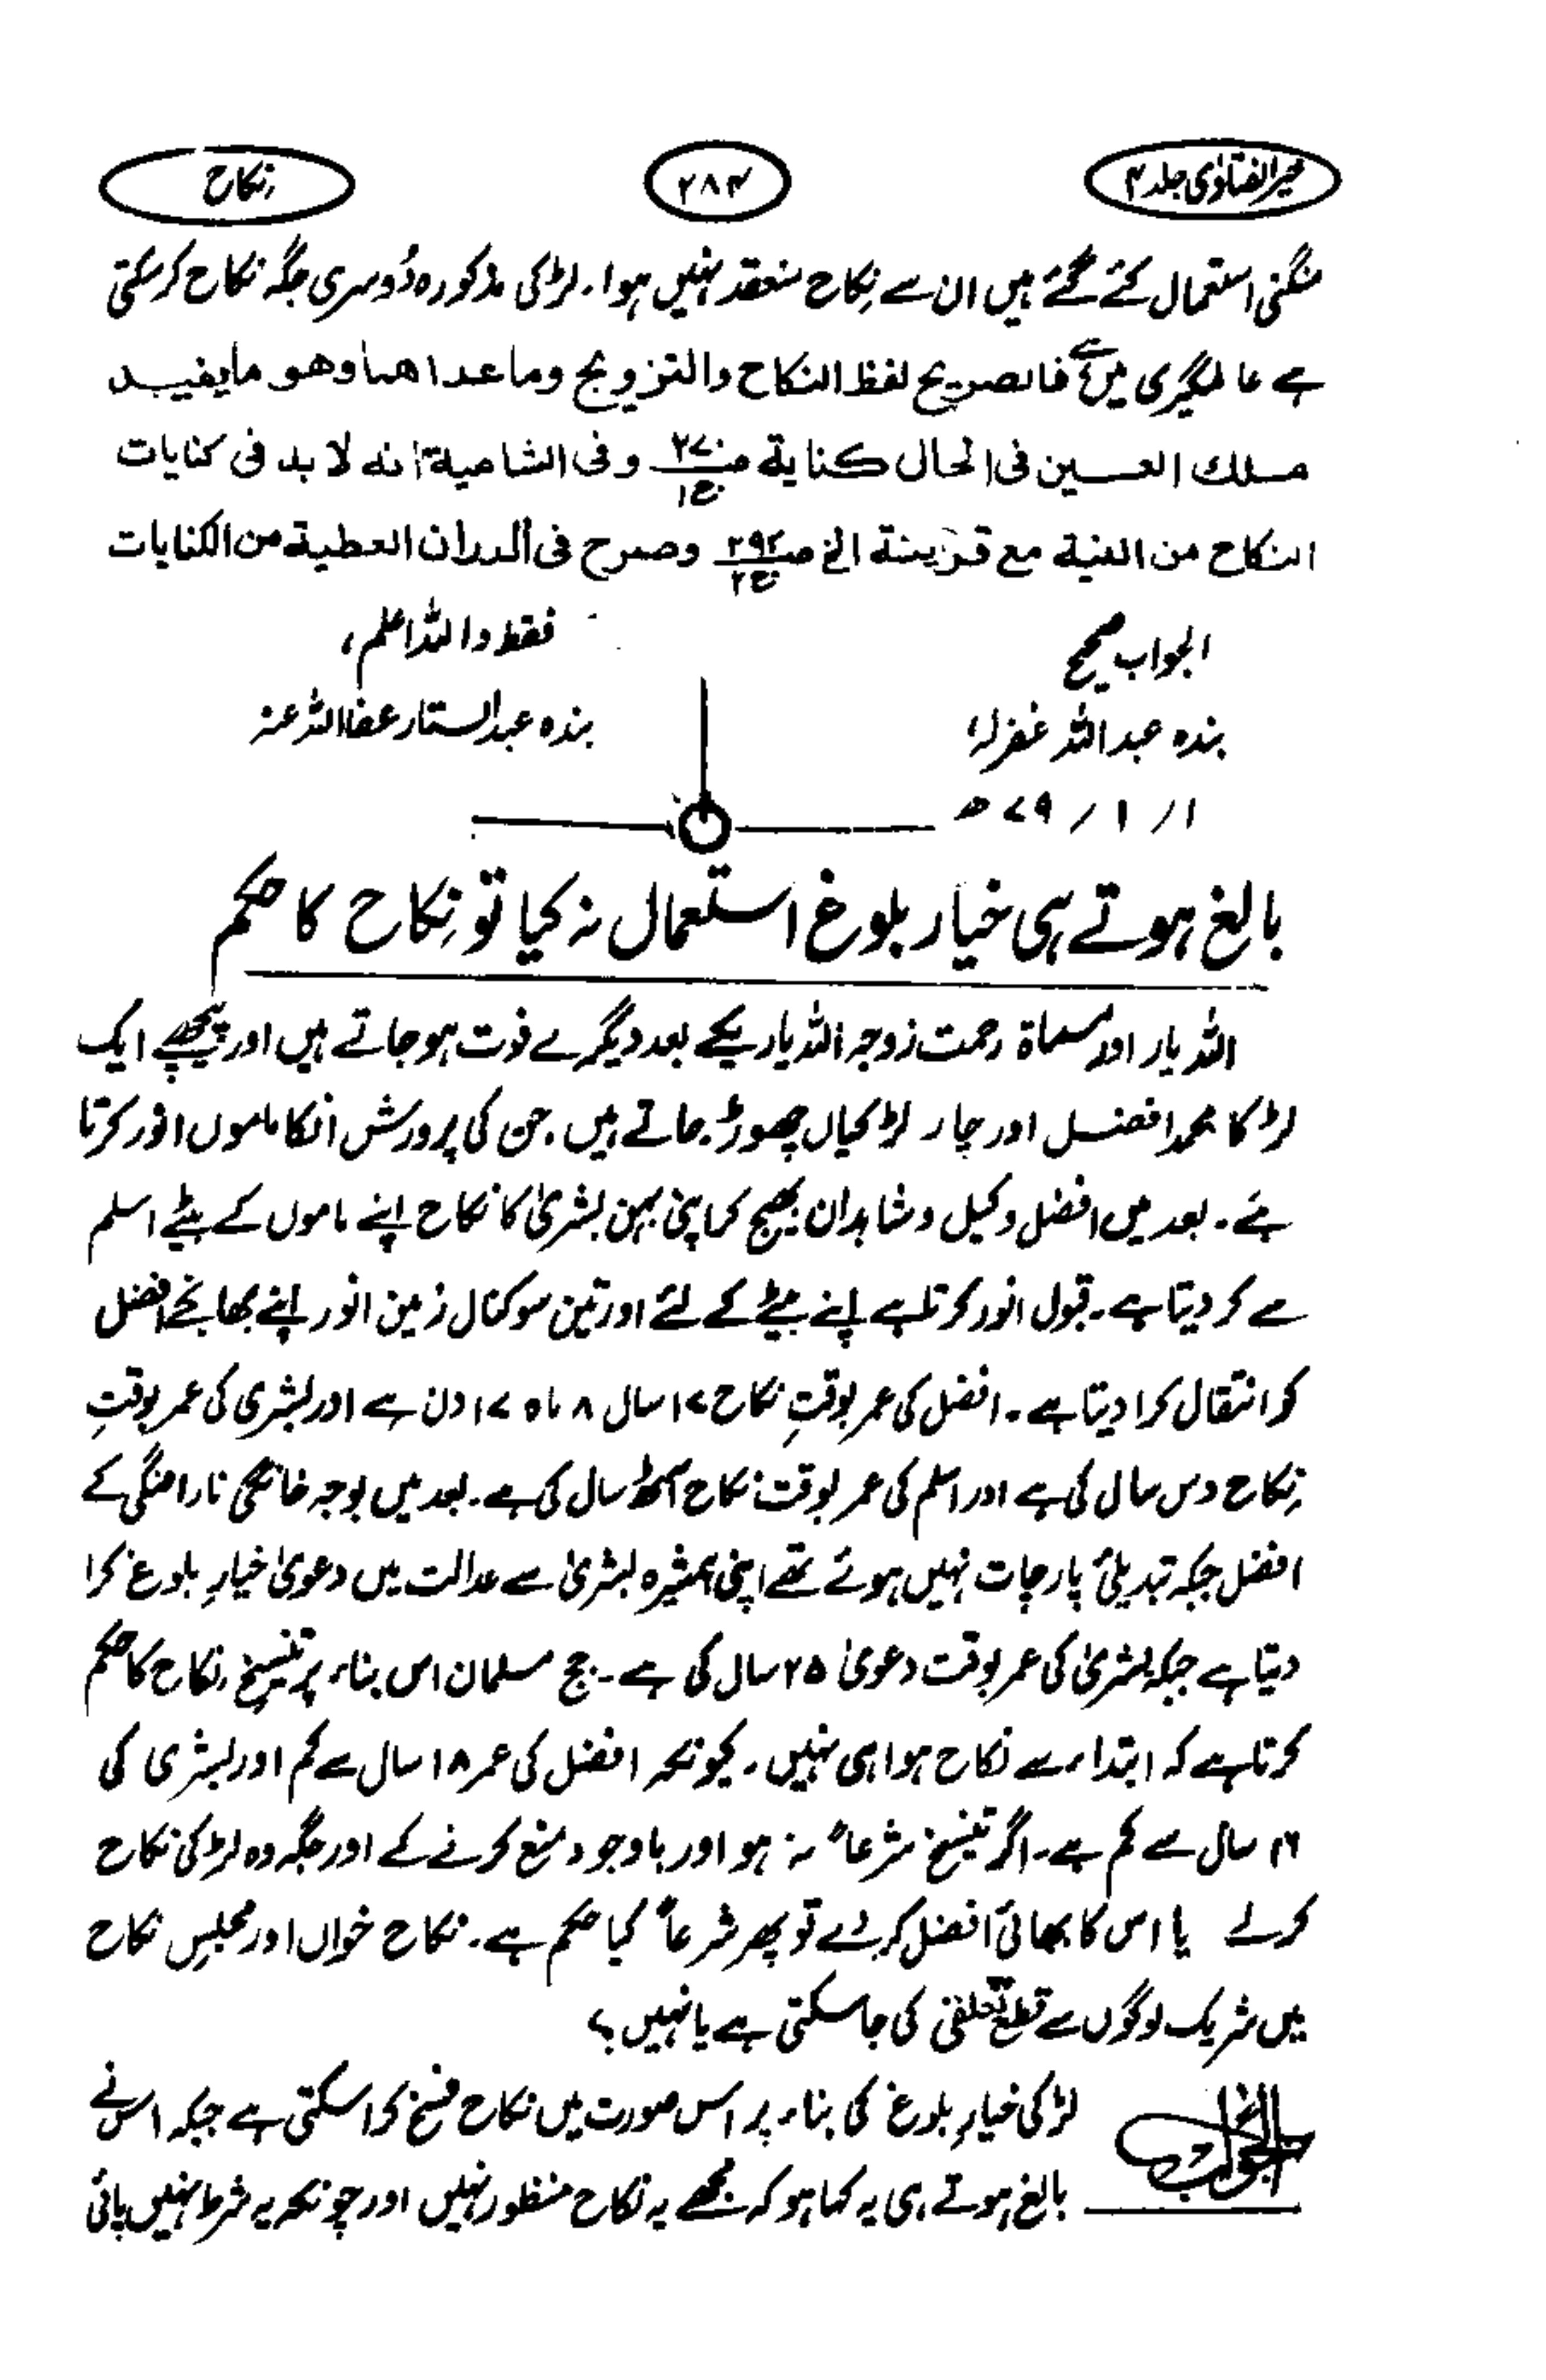 خیر الفتاوٰی جلد ۴
۲۸۴
نکاح
منگنی استعمال کئے گئے ہیں ان سے نِکاح منعقد نہیں ہوا۔ لڑکی مذکورہ دُوسری جگہ نکاح کرسکتی
ہے عالمگیری میں ہے فالصریح لفظ النکاح والتزویج وماعداھما وھو مایفید
ملک العین فی الحال کنایة ص۲۷۰ ج۱ وفی الشامیة انه لابد فی کنایات
النکاح من النیة مع قرینة الخ ص۲۹۲ ج۲ وصرح فی الدر ان العطیة من الکنایات
فقط واللہ اعلم،
الجواب صحیح
بندہ عبدالستار عفااللہ عنہ
بندہ عبداللہ غفرلہٗ
۱ / ۱ / ۷۹ ھ
بالغ ہوتے ہی خیار بلوغ استعمال نہ کیا تو نِکاح کا حکم
اللہ یار اور مسماۃ رحمت زوجہ اللہ یار یکے بعد دیگرے فوت ہوجاتے ہیں اور پیچھے ایک
لڑکا محمد افضل اور چار لڑکیاں چھوڑ جاتے ہیں۔ جن کی پرورش انکا ماموں انور کرتا
ہے۔ بعد میں افضل وکیل و شاہدان بھیج کر اپنی بہن بشریٰ کا نکاح اپنے ماموں کے بیٹے اسلم
سے کر دیتا ہے۔ قبول انور کرتا ہے اپنے بیٹے کے لئے اور تین سو کنال زمین انور اپنے بھانجے افضل
کو انتقال کرا دیتا ہے۔ افضل کی عمر بوقتِ نکاح ۱۷ سال ۸ ماہ ۱۷ دن ہے اور بشریٰ کی عمر بوقتِ
نِکاح دس سال کی ہے اور اسلم کی عمر بوقت نکاح آٹھ سال کی ہے۔ بعد میں بوجہ خانگی ناراضگی کے
افضل جبکہ تبدیلیٔ پارجات نہیں ہوئے تھے اپنی ہمشیرہ بشریٰ سے عدالت میں دعویٰ خیارِ بلوغ کرا
دیتا ہے جبکہ بشریٰ کی عمر بوقت دعویٰ ۲۵ سال کی ہے۔ جج مسلمان اس بناء پر تنسیخِ نکاح کا حکم
کرتا ہے کہ ابتداء سے نکاح ہوا ہی نہیں۔ کیونکہ افضل کی عمر ۱۸ سال سے کم اور بشریٰ کی
۱۶ سال سے کم ہے۔ اگر تنسیخ شرعاً نہ ہو اور باوجود منع کرنے کے اور جگہ وہ لڑکی نکاح
کرلے یا اس کا بھائی افضل کردے تو پھر شرعاً کیا حکم ہے۔ نکاح خواں اور مجلسِ نکاح
میں شریک لوگوں سے قطع تعلقی کی جاسکتی ہے یا نہیں؟
الجواب
لڑکی خیارِ بلوغ کی بناء پر اس صورت میں نکاح فسخ کرا سکتی ہے جبکہ اس نے
بالغ ہوتے ہی یہ کہا ہو کہ مجھے یہ نکاح منظور نہیں اور چونکہ یہ شرط نہیں پائی